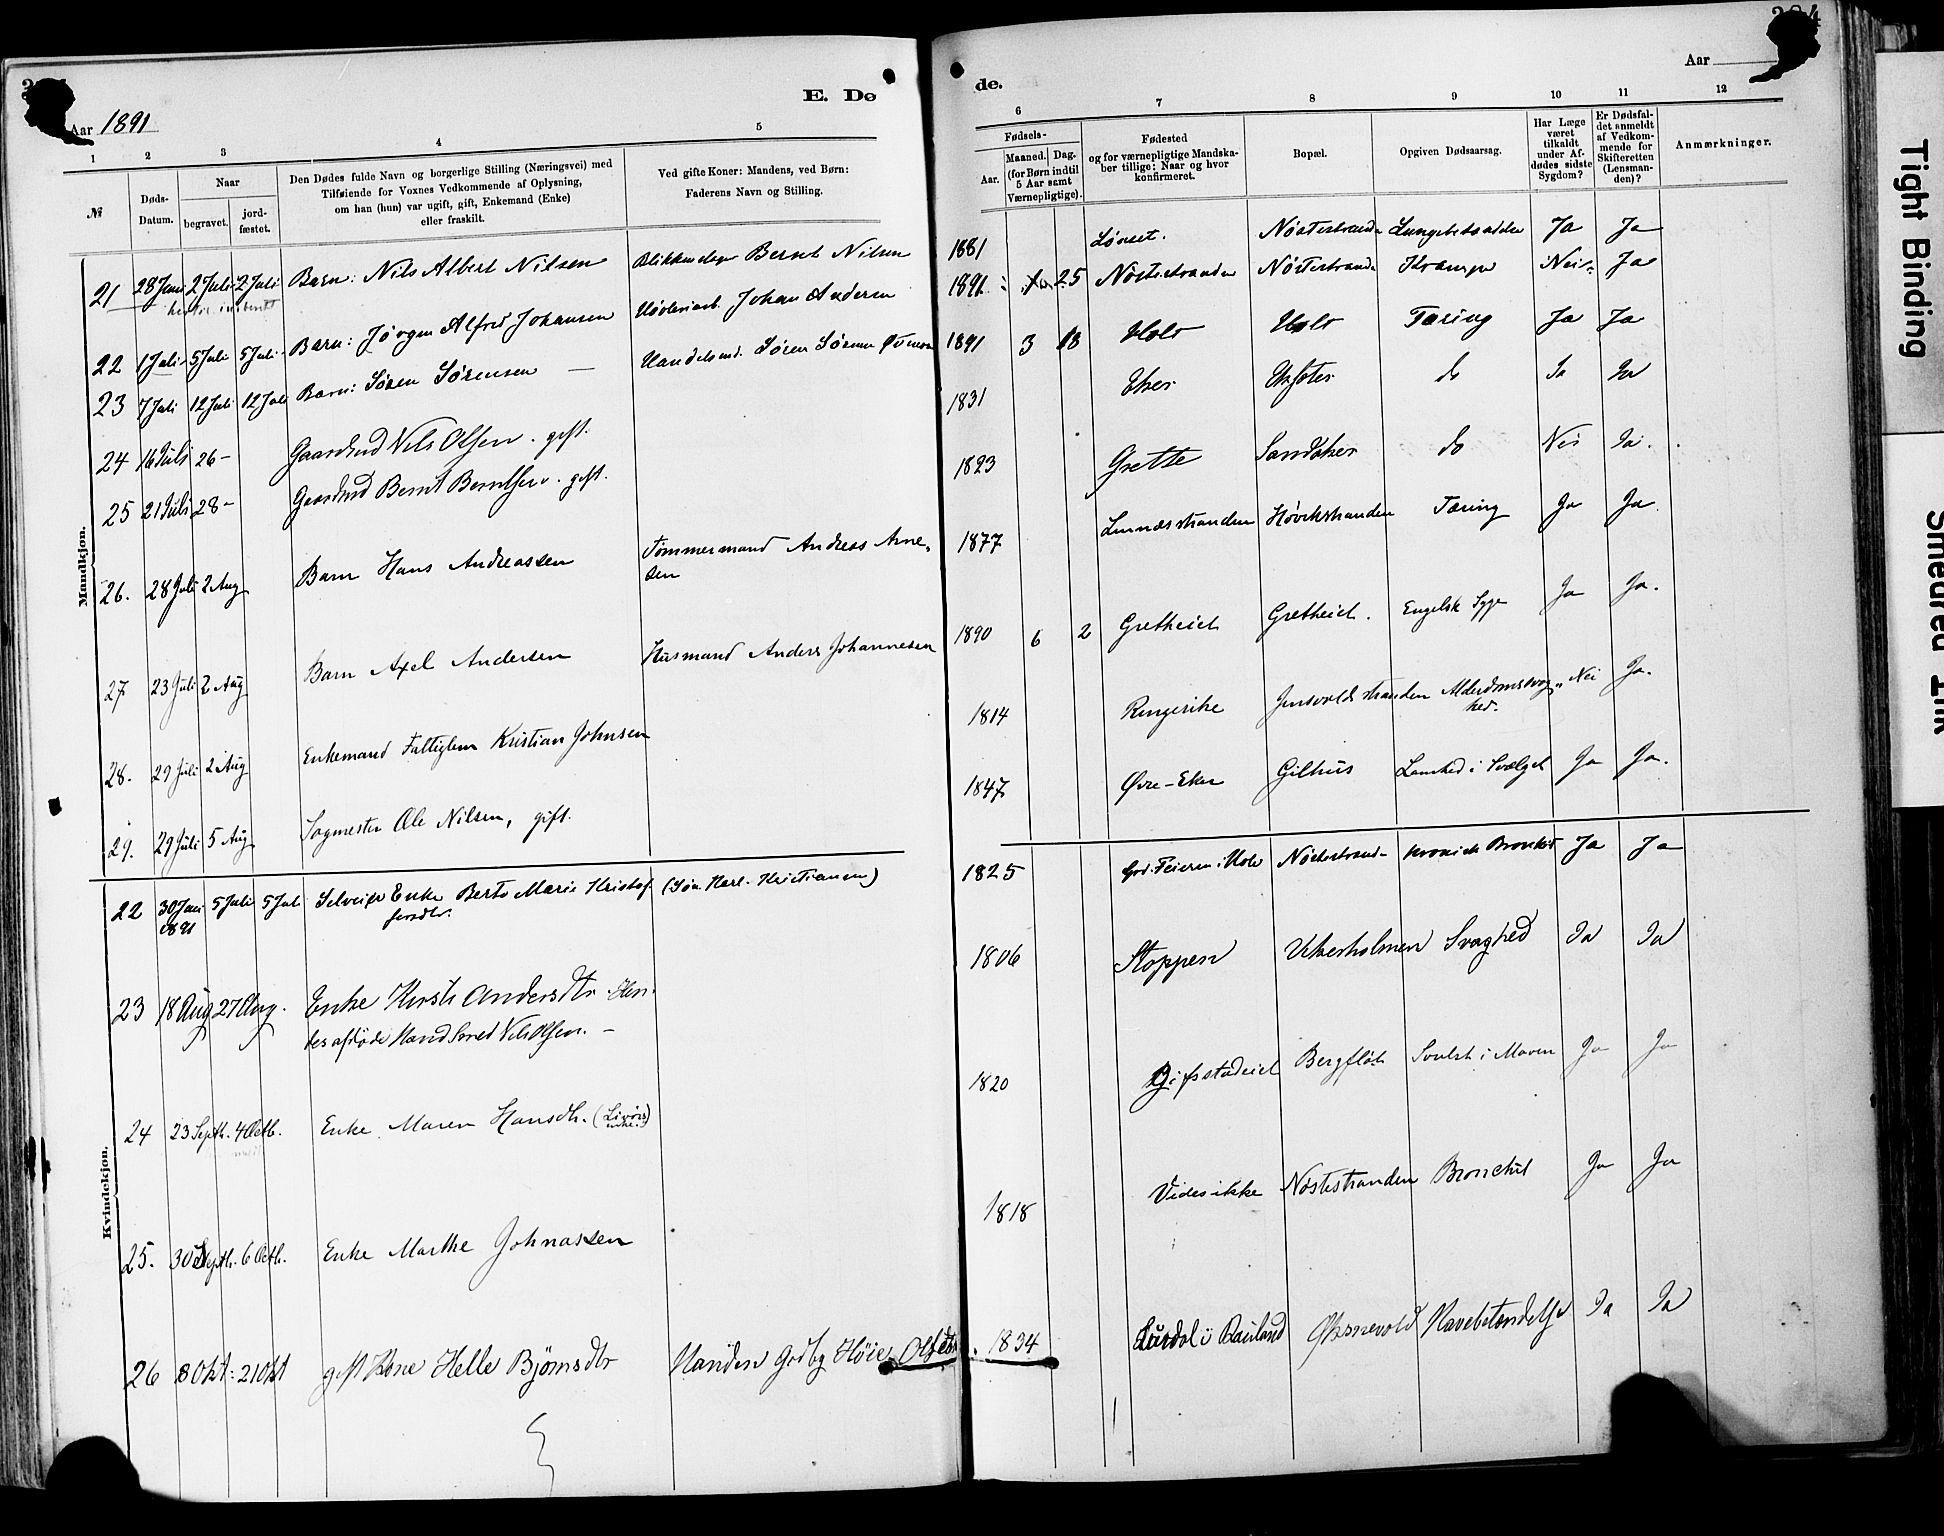 Aar 1891
E. Dø
1 2 3 4 5
№
Døds-Datum.
Naar
begravet.
jord-fæstet.
Den Dødes fulde Navn og borgerlige Stilling (Næringsvei) med
Tilføiende for Voxnes Vedkommende af Oplysning,
om han (hun) var ugift, gift, Enkemand (Enke)
eller fraskilt.
Ved gifte Koner: Mandens, ved Børn:
Faderens Navn og Stilling.
Mandkjøn.
21 28 Juni 2 Juli 2 Juli Barn: Nils Albert Nilsen Blikkenslager Bernt Nilsen
22 1 Juli 5 Juli 5 Juli Barn: Jörgen Alfred Johansen Johan Andersen
23 7 Juli 12 Juli 12 Juli Barn: Sören Sörensen — Handelsmd. Sören Sörensen
24 16 Juli 26 – Gaardmd Nils Olsen . gift.
25 21 Juli 28 – Gaardmd Bernt Berntsen . gift.
26. 28 Juli 2 Aug Barn Hans Andreassen Tømmermand Andreas Arne-
sen
27. 23 Juli 2 Aug Barn Axel Andersen Husmand Anders Johannesen
28. 29 Juli 2 Aug Enkemand Fattiglem Kristian Johnsen
29. 29 Juli 5 Aug Sagmester Ole Nilsen, gift.
Kvindekjøn.
22 30 Juni 5 Juli 5 Jul Enke Berte Marie Kristof-
1891 fersdtr.
23 18 Aug 27 Aug. Enke Kirsti Andersdtr. Hen-
des afdöde Mand Smed Nils Olsen. –
24 23 Septb. 4 Octb. Enke Maren Hansdtr.
25. 30 Septb. 6 Octb. Enke Marthe Johnassen
26 8 Okt: 21 Okt gift Kone Helle Björnsdtr Manden Godbg Höie Olsen
de.
Aar
6 7 8 9 10 11 12
Fødsels-
Aar.
Maaned.
Dag.
(for Børn indtil
5 Aar samt
Værnepligtige).
Fødested
og for værnepligtige Mandska-
ber tillige: Naar og hvor
konfirmeret.
Bopæl.
Opgiven Dødsaarsag.
Har Læge
været
tilkaldt
under Af-
dødes sidste
Sygdom?
Er Dødsfal-
det anmeldt
af Vedkom-
mende for
Skifteretten
(Lensman-
den)?
Anmærkninger.
1881 Lönset. Nöstestranden Lungebetændelse Ja Ja
1891 25 Nöstestranden Nöstestranden Krampe Nei Ja
1891 3 18 Hole Hole Tæring Ja Ja
1831 Eker do Ja Ja
1823 Grette Sandaker do Nei Ja.
1877 Linnesstranden Høvikstranden Tæring Ja Ja.
1890 6 2 Gretheiet Gretheiet. Engelsk Syge Ja Ja.
1814 Ringerike Gunsvoldstranden Alderdomssvag-
hed. Nei Ja.
1847 Øvre-Eker Gilhus Lamhed i Svælget Ja Ja.
1825 Nöstestrand- kronisk Bronkit Ja Ja
1806 Stoppen Ukersholmen Svaghed Ja Ja
1820 Bergflöt Svulst i Maven Ja Ja
1818 Vides ikke Nöstestranden Bronchit Ja Ja
1834 Rauland Mavebetændelse Ja Ja
Tight Binding
Smeared Ink